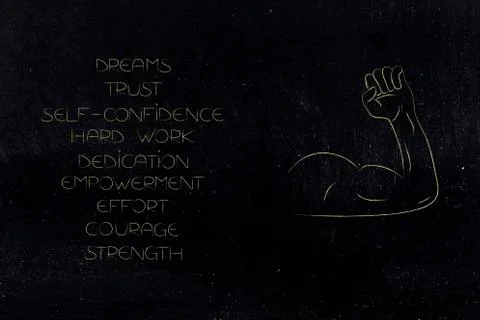 DREAMS
TRUST
SELF-CONFIDENCE
HARD WORK
DEDICATION
EMPOWERMENT
EFFORT
COURAGE
STRENGTH